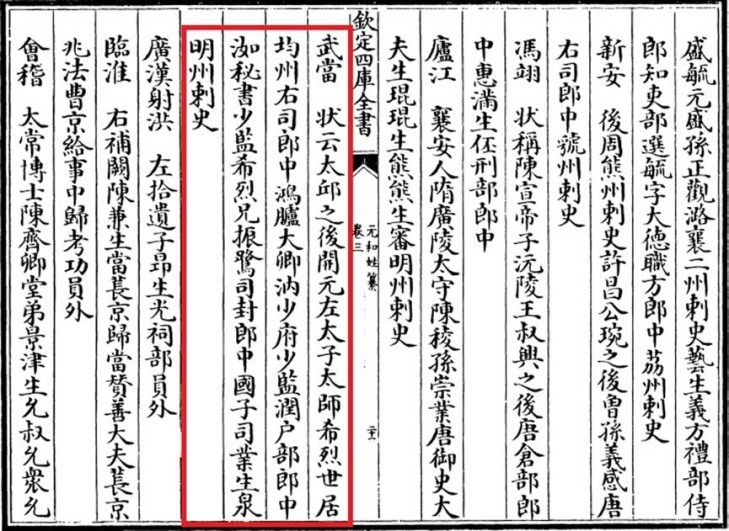 盛毓元盛孫正觀潞襄二州刺史藝生義方禮部侍
郎知吏部選毓字大德職方郎中荔州刺史
新安　後周熊州刺史許昌公琬之後曽孫義感唐
右司郎中虢州刺史
馮翊　狀稱陳宣帝子沅陵王叔興之後唐倉部郎
中惠滿生伾刑部郎中
廬江　襄安人隋廣陵太守陳稜孫崇業唐御史大
夫生琨琨生熊熊生審明州刺史
欽定四庫全書
元和姓纂
卷三
武當　狀云太邱之後開元左太子太師希烈世居
均州右司郎中鴻臚大卿汭少府少監潤户部郎中
洳秘書少監希烈兄振鷺司封郎中國子司業生泉
明州刺史
廣漢射洪　左拾遺子昂生光祠部員外
臨淮　右補闕陳兼生當萇京歸當賛善大夫萇京
兆法曹京給事中歸考功員外
會稽　太常博士陳齊卿堂弟景津生允叔允衆允